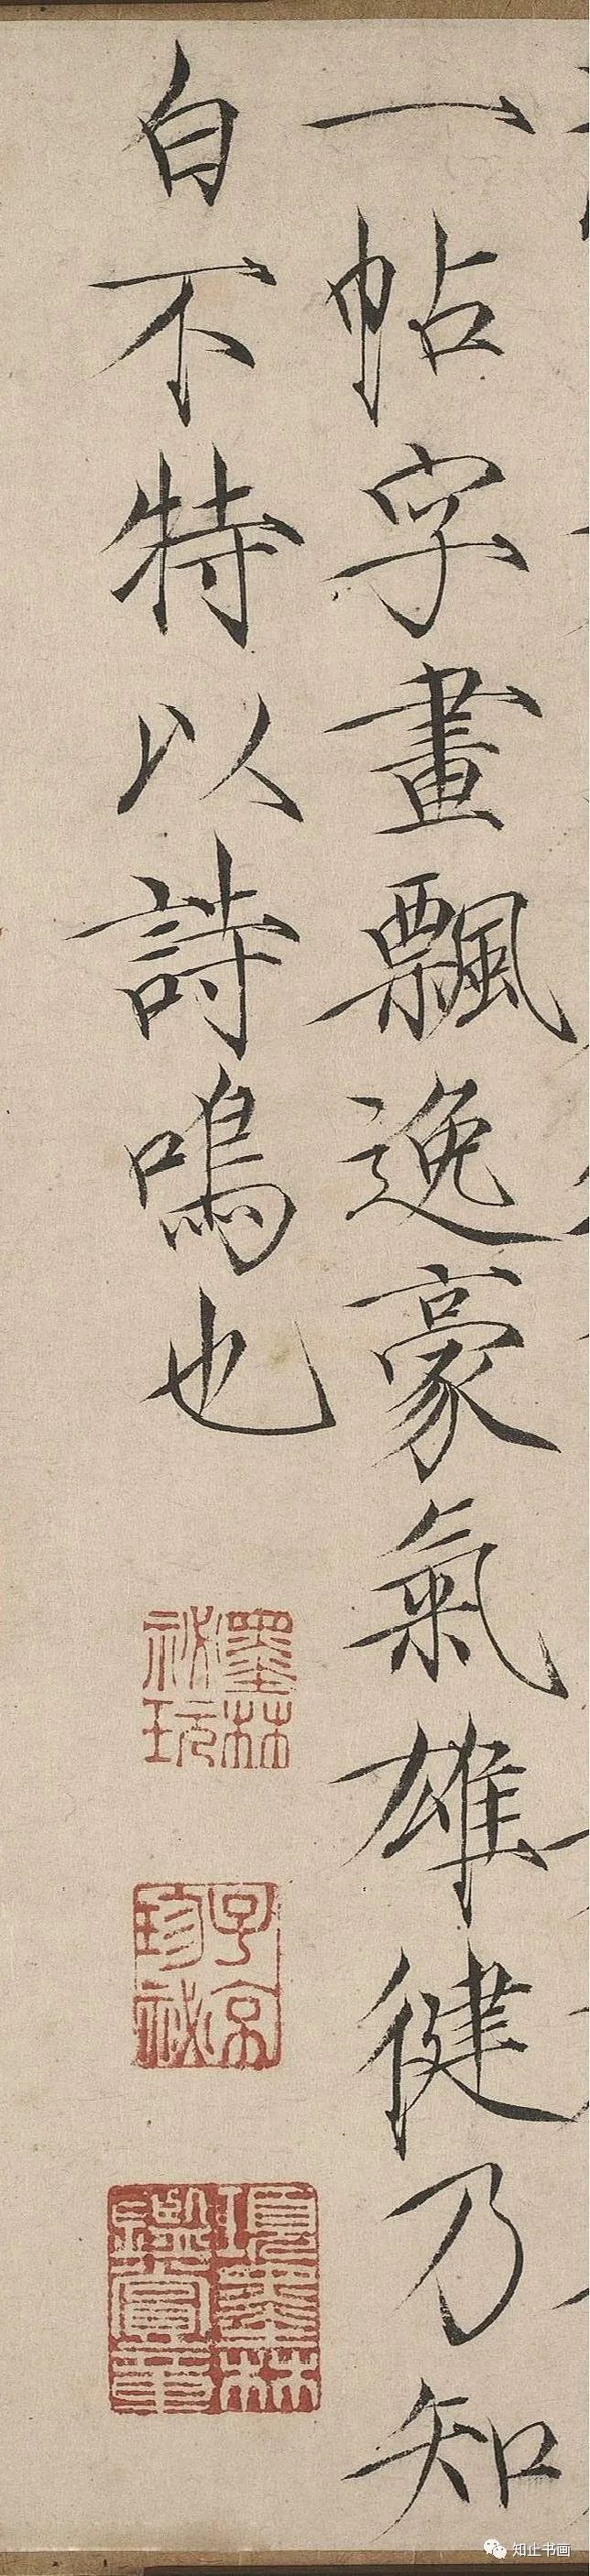 一帖字畫飄逸豪氣雄健乃知
白不特以詩鳴也
墨林
祕玩
子京
珍祕
項墨林
鑑賞章
知止书画